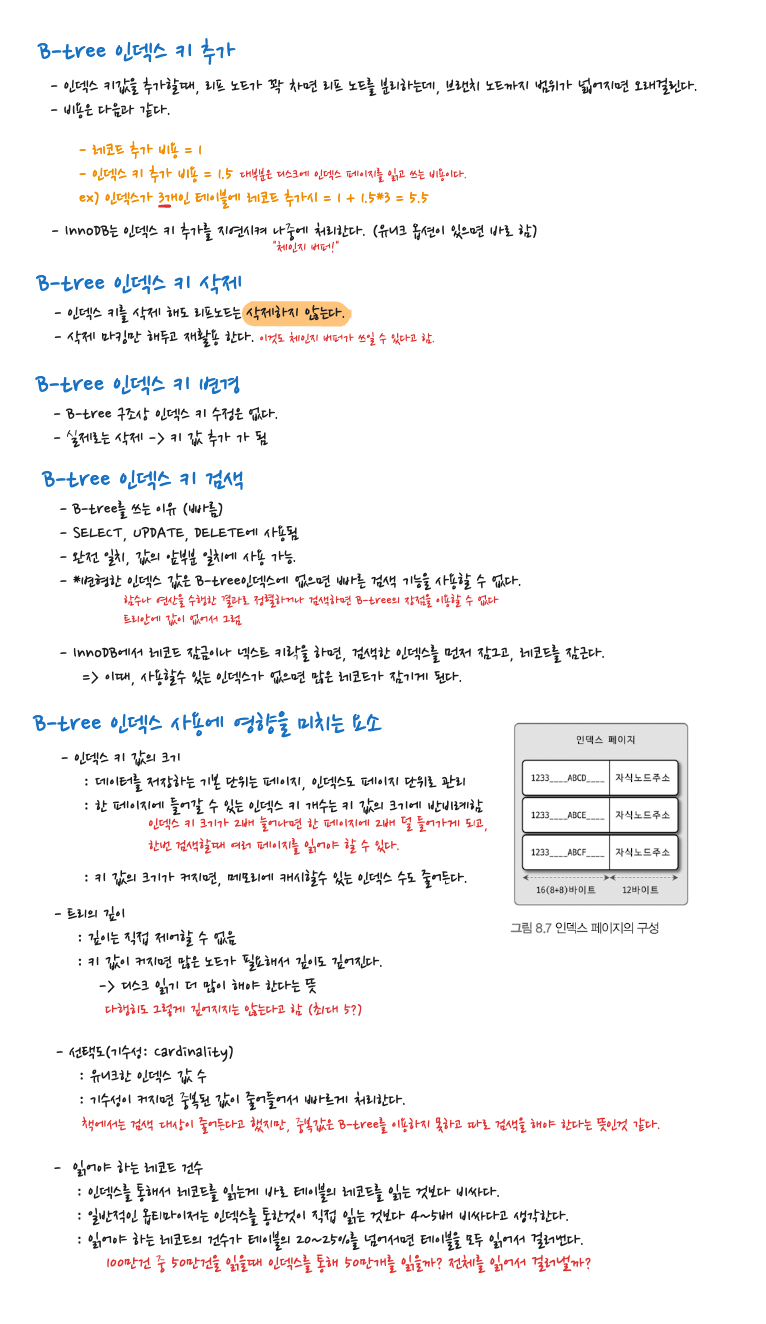 B-tree 인덱스 키 추가
- 인덱스 키값을 추가할때, 리프 노드가 꽉 차면 리프 노드를 분리하는데, 브랜치 노드까지 범위가 넓어지면 오래걸린다.
- 비용은 다음과 같다.
- 레코드 추가 비용 = 1
- 인덱스 키 추가 비용 = 1.5 대부분은 디스크에 인덱스 페이지를 읽고 쓰는 비용이다.
ex) 인덱스가 3개인 테이블에 레코드 추가시 = 1 + 1.5*3 = 5.5
- InnoDB는 인덱스 키 추가를 지연시켜 나중에 처리한다. (유니크 옵션이 있으면 바로 함)
"체인지 버퍼!"
B-tree 인덱스 키 삭제
- 인덱스 키를 삭제 해도 리프노드는 삭제하지 않는다.
- 삭제 마킹만 해두고 재활용 한다. 이것도 체인지 버퍼가 쓰일 수 있다고 함.
B-tree 인덱스 키 변경
- B-tree 구조상 인덱스 키 수정은 없다.
- 실제로는 삭제 -> 키 값 추가 가 됨
B-tree 인덱스 키 검색
- B-tree를 쓰는 이유 (빠름)
- SELECT, UPDATE, DELETE에 사용됨
- 완전 일치, 값의 앞부분 일치에 사용 가능.
- *변형한 인덱스 값은 B-tree인덱스에 없으면 빠른 검색 기능을 사용할 수 없다.
함수나 연산을 수행한 결과로 정렬하거나 검색하면 B-tree의 장점을 이용할 수 없다
트리안에 값이 없어서 그럼
- InnoDB에서 레코드 잠금이나 넥스트 키락을 하면, 검색한 인덱스를 먼저 잠그고, 레코드를 잠근다.
=> 이때, 사용할수 있는 인덱스가 없으면 많은 레코드가 잠기게 된다.
B-tree 인덱스 사용에 영향을 미치는 요소
- 인덱스 키 값의 크기
: 데이터를 저장하는 기본 단위는 페이지, 인덱스도 페이지 단위로 관리
: 한 페이지에 들어갈 수 있는 인덱스 키 개수는 키 값의 크기에 반비례함
인덱스 키 크기가 2배 늘어나면 한 페이지에 2배 덜 들어가게 되고,
한번 검색할때 여러 페이지를 읽어야 할 수 있다.
: 키 값의 크기가 커지면, 메모리에 캐시할수 있는 인덱스 수도 줄어든다.
인덱스 페이지
1233____ABCD____ 자식노드주소
1233____ABCE____ 자식노드주소
1233____ABCF____ 자식노드주소
16(8+8)바이트 12바이트
그림 8.7 인덱스 페이지의 구성
- 트리의 깊이
: 깊이는 직접 제어할 수 없음
: 키 값이 커지면 많은 노드가 필요해서 깊이도 깊어진다.
-> 디스크 읽기 더 많이 해야 한다는 뜻
다행히도 그렇게 깊어지지는 않는다고 함 (최대 5?)
- 선택도(기수성: cardinality)
: 유니크한 인덱스 값 수
: 기수성이 커지면 중복된 값이 줄어들어서 빠르게 처리한다.
책에서는 검색 대상이 줄어든다고 했지만, 중복값은 B-tree를 이용하지 못하고 따로 검색을 해야 한다는 뜻인것 같다.
- 읽어야 하는 레코드 건수
: 인덱스를 통해서 레코드를 읽는게 바로 테이블의 레코드를 읽는 것보다 비싸다.
: 일반적인 옵티마이저는 인덱스를 통한것이 직접 읽는 것보다 4~5배 비싸다고 생각한다.
: 읽어야 하는 레코드의 건수가 테이블의 20~25%를 넘어서면 테이블을 모두 읽어서 걸러낸다.
100만건 중 50만건을 읽을때 인덱스를 통해 50만개를 읽을까? 전체를 읽어서 걸러낼까?